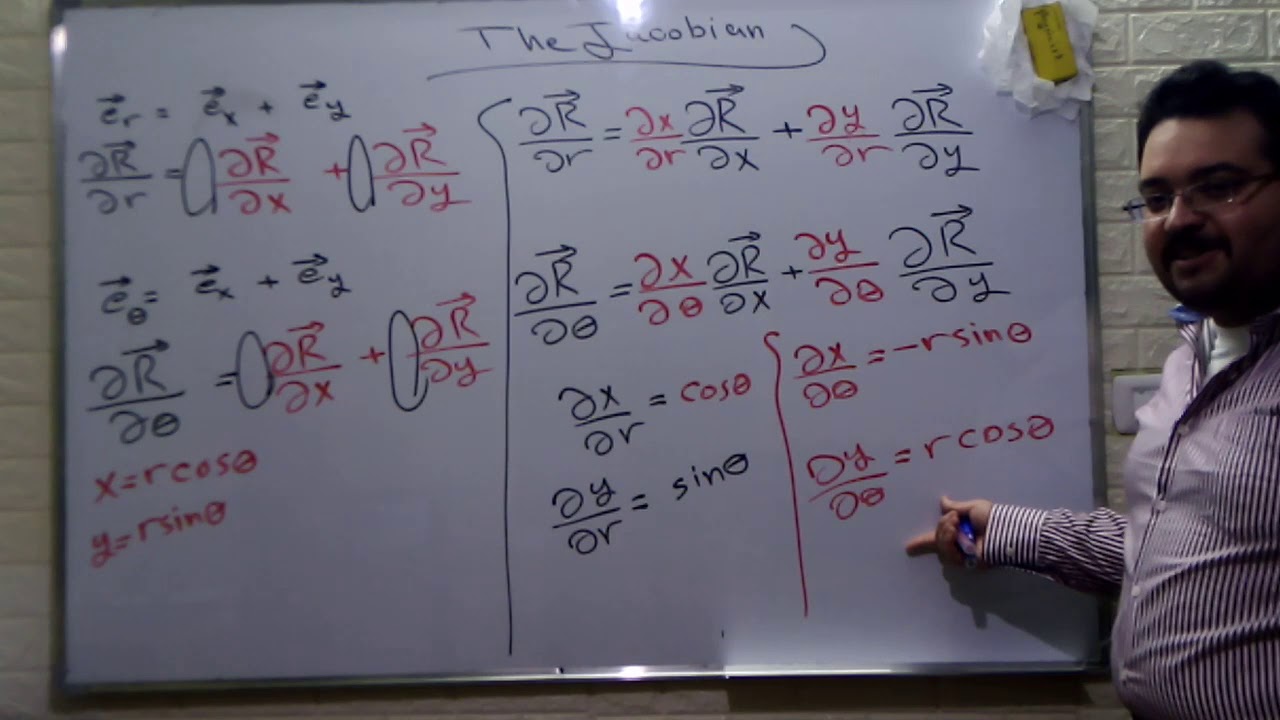 The Jacobian
e⃗r = e⃗x + e⃗y
∂R⃗/∂r = ∂R⃗/∂x + ∂R⃗/∂y
e⃗θ = e⃗x + e⃗y
∂R⃗/∂θ = ∂R⃗/∂x + ∂R⃗/∂y
x=rcosθ
y=rsinθ
∂R⃗/∂r = ∂x/∂r ∂R⃗/∂x + ∂y/∂r ∂R⃗/∂y
∂R⃗/∂θ = ∂x/∂θ ∂R⃗/∂x + ∂y/∂θ ∂R⃗/∂y
∂x/∂r = cosθ
∂y/∂r = sinθ
∂x/∂θ = -rsinθ
∂y/∂θ = rcosθ